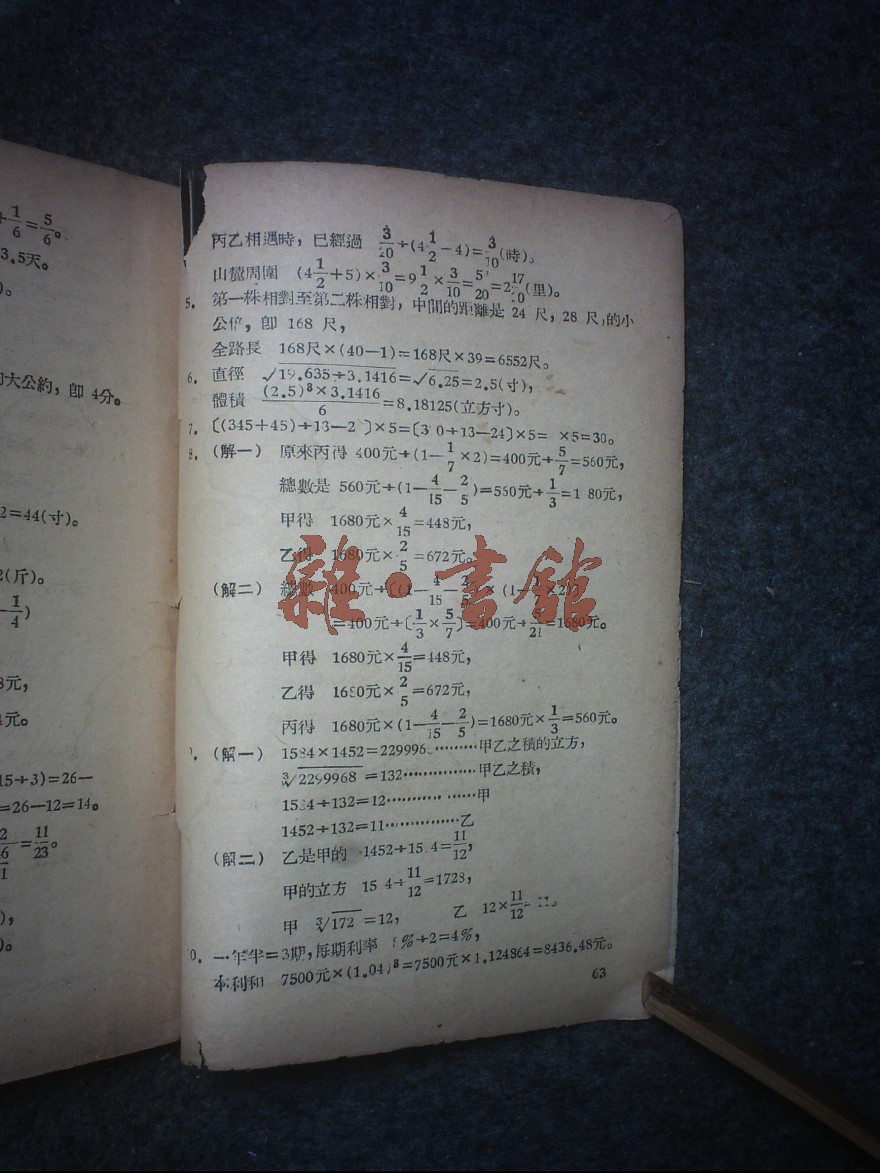 +1/6=5/6。
3.5天。
)。
大公約，卽 4分。
2=44(寸)。
2(斤)。
-1/4)
元，
元。
15÷3)=26—
=26—12=14。
=11/23。
)，
)。
丙乙相遇時，已經過 3/20÷(4 1/2—4)=3/10(時)。
山麓周圍 (4 1/2+5)×3/10=9 1/2×3/10=5/20=2 17/20(里)。
5. 第一株相對至第二株相對，中間的距離是 24 尺，28 尺，的小
公倍，卽 168 尺，
全路長 168尺×(40—1)=168尺×39=6552尺。
6. 直徑 √19.635÷3.1416=√6.25=2.5(寸)，
體積 (2.5)³×3.1416/6=8.18125(立方寸)。
7. 〔(345+45)÷13—2 〕×5=〔3 0÷13—24〕×5= ×5=30。
8. (解一) 原來丙得 400元÷(1—1/7×2)=400元÷5/7=560元，
總數是 560元÷(1—4/15—2/5)=560元÷1/3=1 80元，
甲得 1680元×4/15=448元，
乙得 1680元×2/5=672元。
雜·書館
(解二) 總數 400元÷〔(1—4/15—2/5)×(1—1/7×2)〕
=400元÷〔1/3×5/7〕=400元÷5/21=1680元。
甲得 1680元×4/15=448元，
乙得 1680元×2/5=672元，
丙得 1680元×(1—4/15—2/5)=1680元×1/3=560元。
(解一) 1584×1452=229996 ………甲乙之積的立方，
³√2299968=132……………甲乙之積，
15 4÷132=12………… ……甲
1452÷132=11……………乙
(解二) 乙是甲的 1452÷15 4=11/12，
甲的立方 15 4÷11/12=1728，
甲 ³√172 =12， 乙 12×11/12=
0. 一年半=3期，每期利率 %÷2=4%，
本利和 7500元×(1.04)³=7500元×1.124864=8436.48元。
63